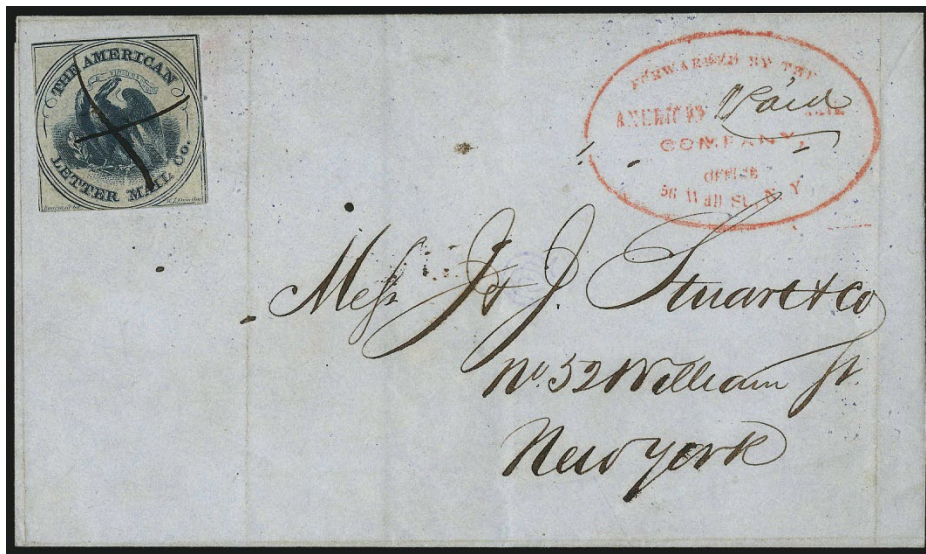 THE AMERICAN
LETTER MAIL Co.
FORWARDED BY THE
AMERICAN MAIL
Paid
COMPANY,
OFFICE
56 Wall St. N.Y
Mess J & J. Stuart & Co
No. 52 William St.
New York